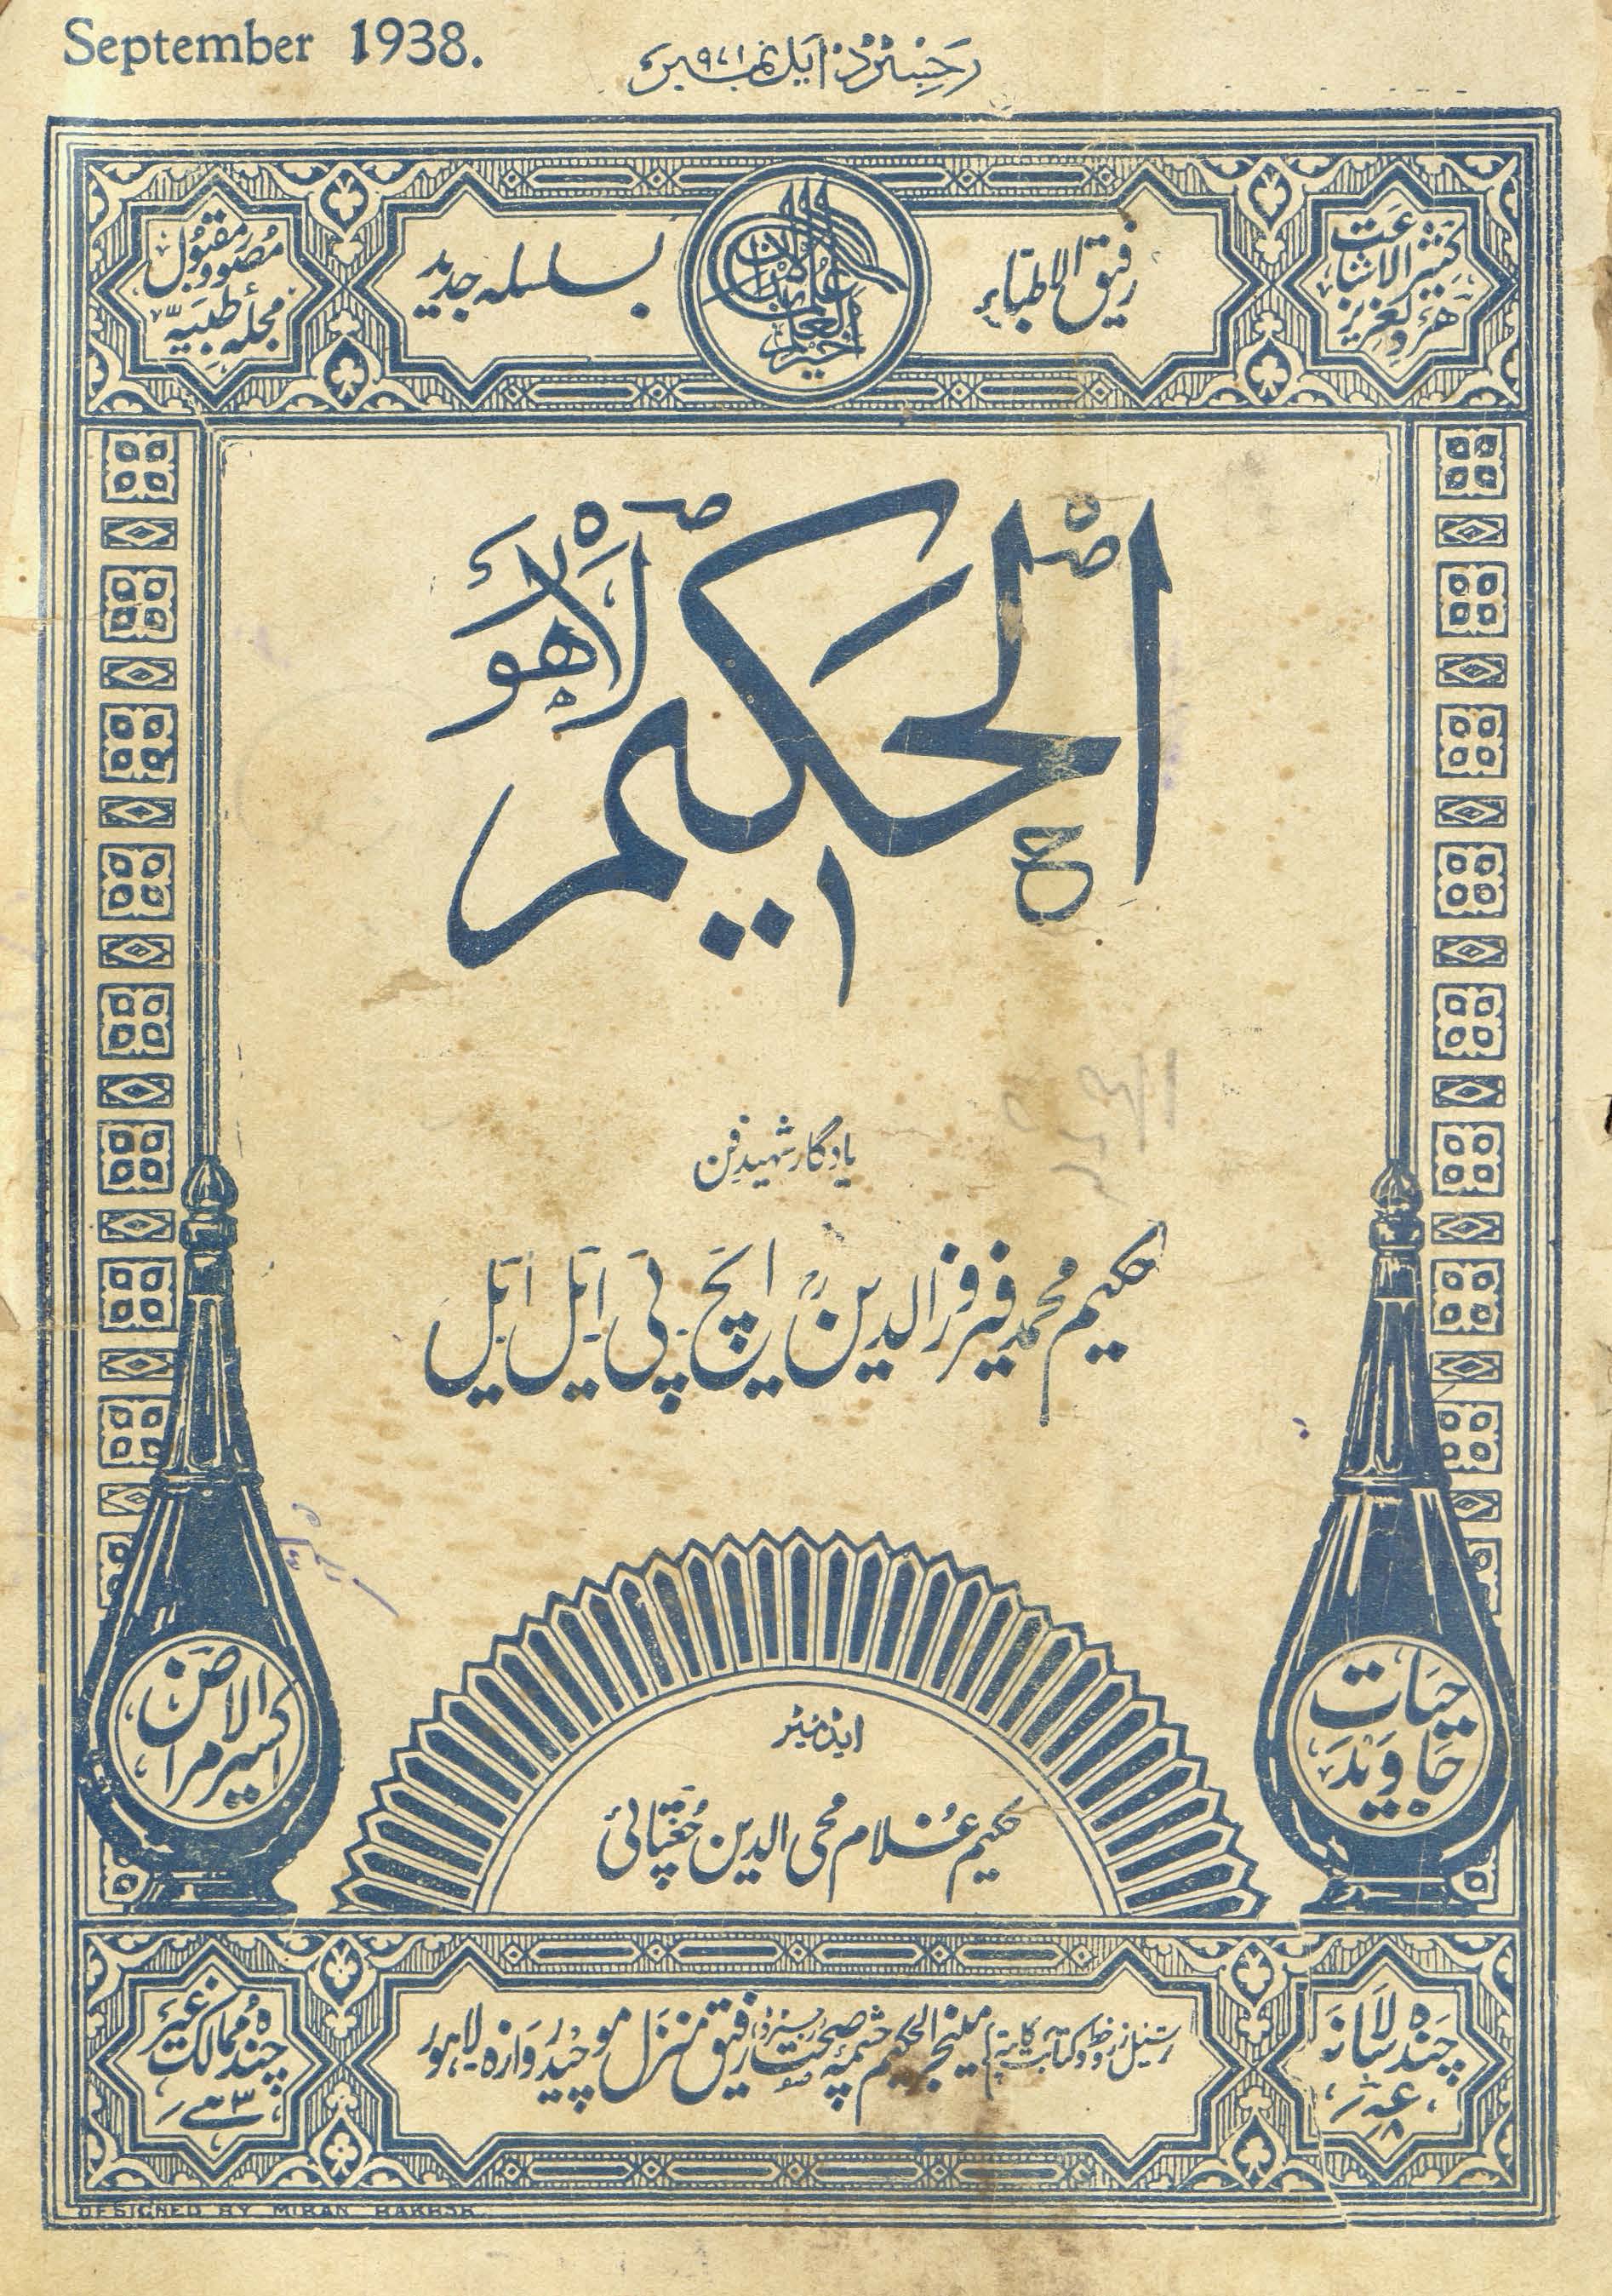 September 1938.
رجسٹرڈ ایل نمبر ۹۷۱
کثیر الاشاعت
ہر دلعزیز
رفیق الاطباء
بسلسلہ جدید
مصور و مقبول
مجلہ طبیہ
الحکیم لاہور
یادگار شہید فن
حکیم محمد فیروز الدین ایچ پی ایل ایل
حیات
جاوید
اکسیر الامراض
ایڈیٹر
حکیم غلام محی الدین چغتائی
چندہ سالانہ
ترسیل زر و خط و کتابت کا پتہ) مینجر الحکیم چشمہ صحت رجسٹرڈ رفیق منزل موچیدروازہ لاہور
چندہ ممالک غیر
DESIGNED BY MIRAN BAKHSH